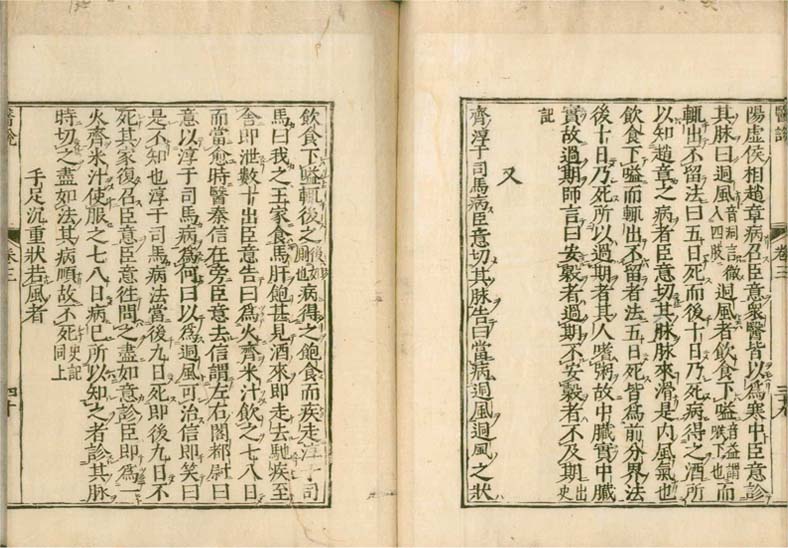 陽虛侯相趙章病召臣意衆醫皆以爲寒中臣意診
其脉曰迵風音洞言徹入四肢迵風者飲食下嗌音益謂喉下也而
輒出不留法曰五日死而後十日乃死病得之酒所
以知趙章之病者臣意切其脉脉來滑是內風氣也
飲食下嗌而輒出不留者法五日死皆爲前分界法
後十日乃死所以過期者其人嗜粥故中臓實中臓
實故過期師言曰安穀者過期不安穀者不及期出史
記
又
齊淳于司馬病臣意切其脉告曰當病迵風迵風之狀
飲食下嗌輒後之後如廁也病得之飽食而疾走淳于司
馬曰我之王家食馬肝飽甚見酒來卽走去馳疾至
舍卽泄數十出臣意告曰爲火齊米汁飲之七八日
而當愈時醫秦信在旁臣意去信謂左右閣都尉曰
意以淳于司馬病爲何曰以爲迵風可治信卽笑曰
是不知也淳于司馬病法當後九日死卽後九日不
死其家復召臣意臣意往問之盡如意診臣卽爲一
火齊米汁使服之七八日病已所以知之者診其脉
時切之盡如法其病順故不死史記同上
手足沉重狀若風者
醫說
卷三
三十九
醫說
卷三
四十